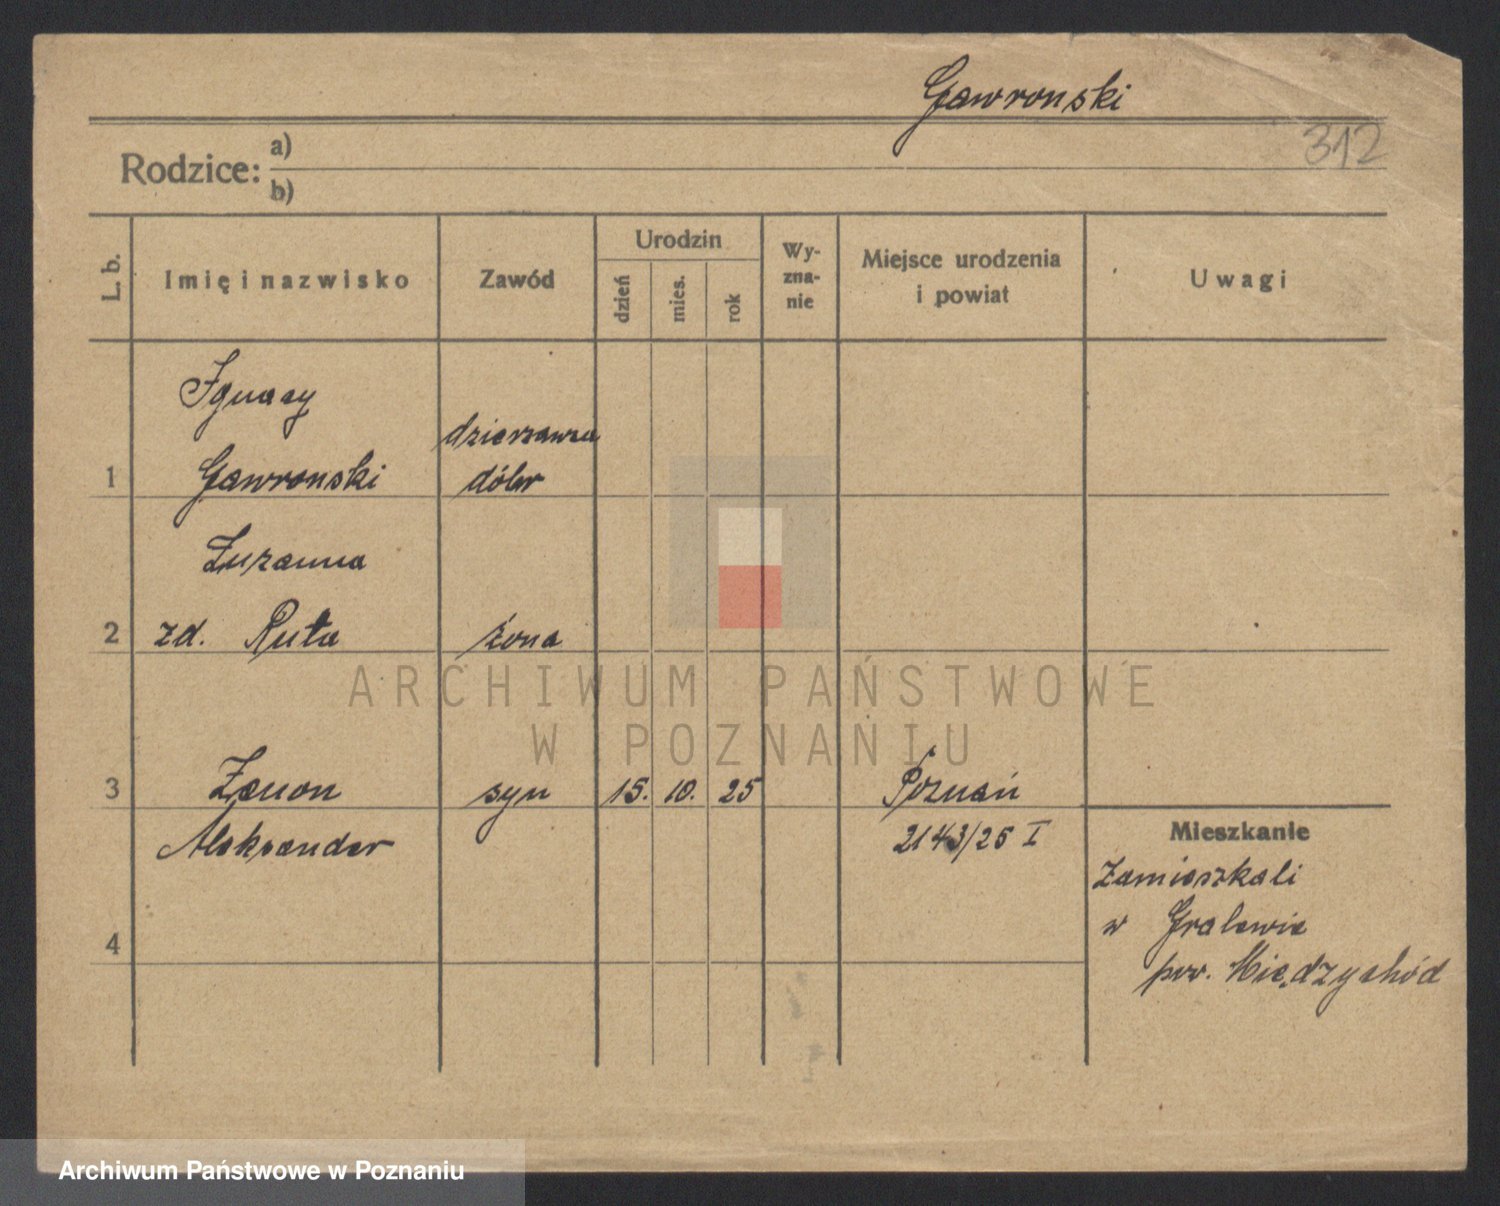 Gawronski
312
Rodzice: a)
b)
L. b.
Imię i nazwisko
Zawód
Urodzin
dzień
mies.
rok
Wy-
zna-
nie
Miejsce urodzenia
i powiat
Uwagi
Ignacy
dzierżawca
1 Gawronski dóbr
Zuzanna
2 zd. Ruta żona
3 Zenon syn 15. 10. 25 Poznań
Aleksander 2143/25 I
Mieszkanie
Zamieszkali
w Gralewie
4
pow. Międzychód
ARCHIWUM PAŃSTWOWE
W POZNANIU
Archiwum Państwowe w Poznaniu